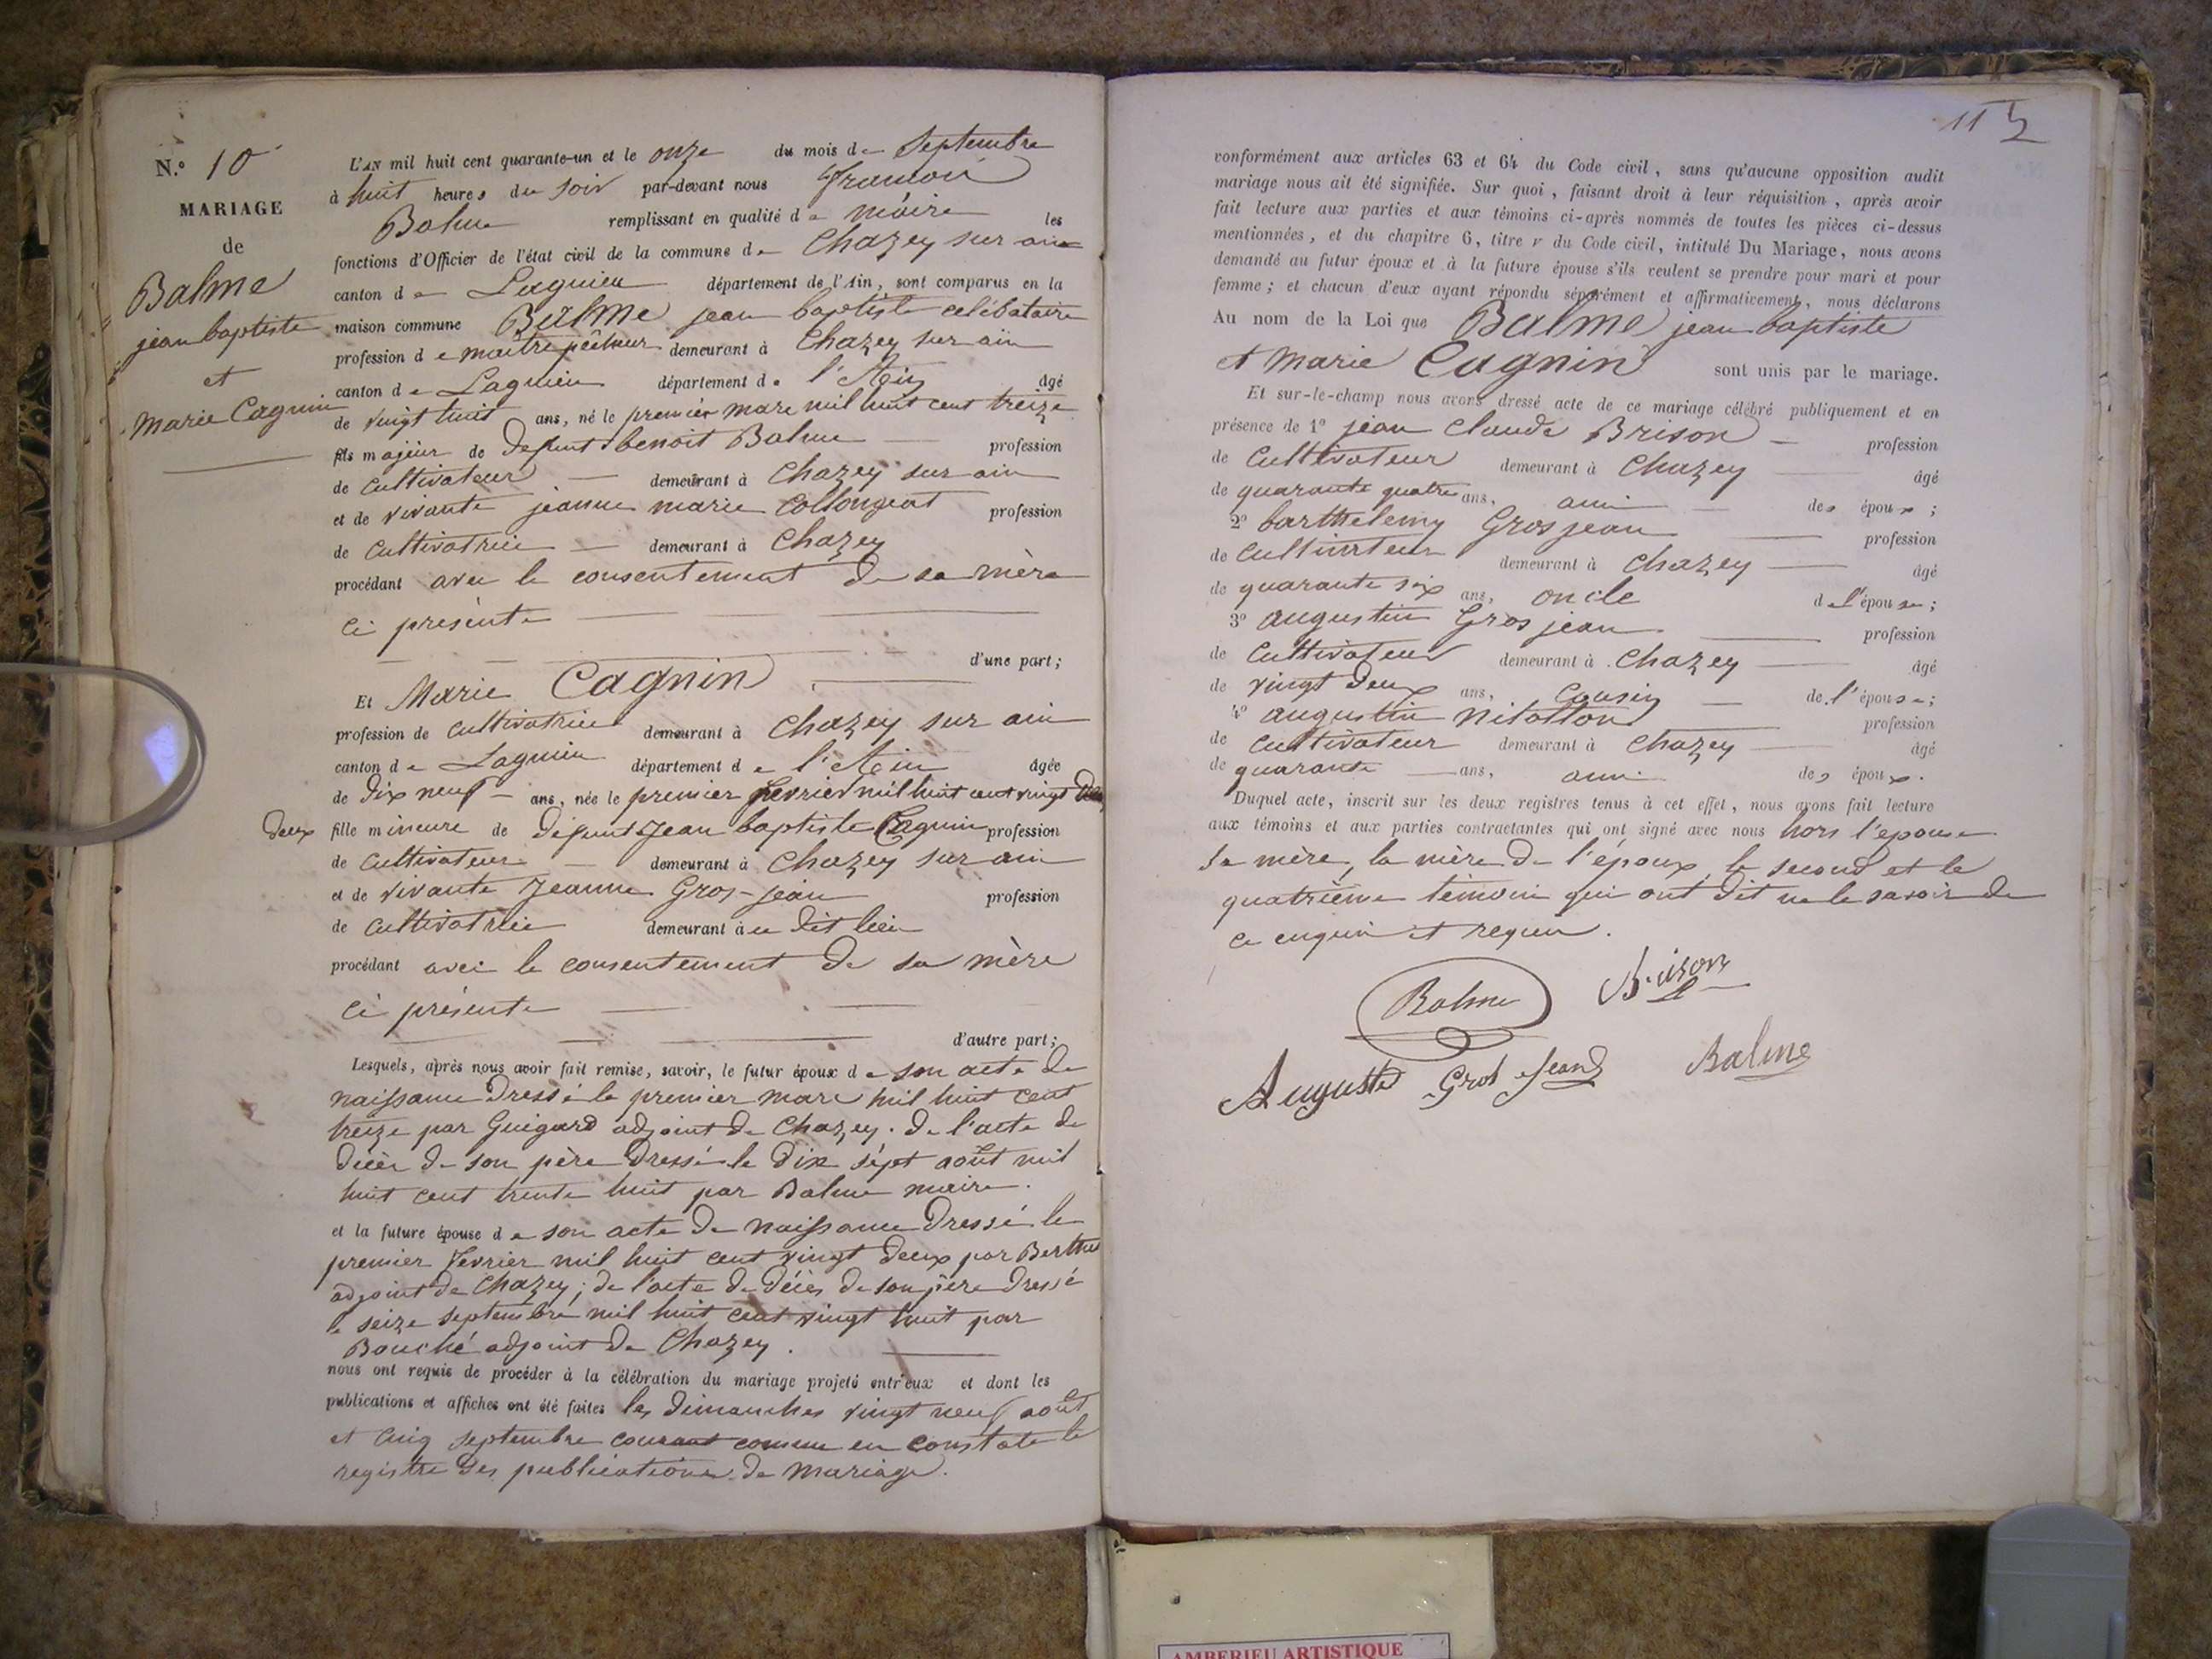 N.º 10
MARIAGE
de
Balme
jean baptiste
et
Marie Cagnin
L'AN mil huit cent quarante-un et le onze du mois de Septembre
à huit heures du soir par-devant nous françois
Balme remplissant en qualité de maire les
fonctions d'Officier de l'état civil de la commune de Chazey sur ain
canton de Lagnieu département de l'Ain, sont comparus en la
maison commune Balme jean baptiste celébataire
profession de maitre pêcheur demeurant à Chazey sur ain
canton de Lagnieu département de l'Ain âgé
de vingt huit ans, né le premier mars mil huit cent treize
fils majeur de defunt benoit Balme profession
de cultivateur demeurant à Chazey sur ain
et de vivante jeanne marie Collongeat profession
de cultivatrice demeurant à Chazey
procédant avec le consentement de sa mère
ci présente
d'une part;
Et Marie Cagnin
profession de cultivatrice demeurant à Chazey sur ain
canton de Lagnieu département de l'Ain âgée
de dix neuf ans, née le premier fevrier mil huit cent vingt
deux fille mineure de defunt Jean baptiste Cagnin profession
de cultivateur demeurant à Chazey sur ain
et de vivante Jeanne Gros-jean profession
de cultivatrice demeurant au dit lieu
procédant avec le consentement de sa mère
ci présente
d'autre part;
Lesquels, après nous avoir fait remise, savoir, le futur époux de son acte de
naissance dressé le premier mars mil huit cent
treize par Guigard adjoint de Chazey. de l'acte de
décès de son père dressé le dix sept août mil
huit cent trente huit par Balme maire.
et la future épouse de son acte de naissance dressé le
premier fevrier mil huit cent vingt deux par
adjoint de Chazey; de l'acte de décès de son père dressé
le seize septembre mil huit cent vingt huit par
Bouché adjoint de Chazey.
nous ont requis de procéder à la célébration du mariage projeté entr'eux et dont les
publications et affiches ont été faites les dimanches vingt neuf août
et cinq septembre courant comme en constate le
registre des publications de mariage.
115
conformément aux articles 63 et 64 du Code civil, sans qu'aucune opposition audit
mariage nous ait été signifiée. Sur quoi, faisant droit à leur réquisition, après avoir
fait lecture aux parties et aux témoins ci-après nommés de toutes les pièces ci-dessus
mentionnées, et du chapitre 6, titre v du Code civil, intitulé Du Mariage, nous avons
demandé au futur époux et à la future épouse s'ils veulent se prendre pour mari et pour
femme; et chacun d'eux ayant répondu séparément et affirmativement, nous déclarons
Au nom de la Loi que Balme jean baptiste
et Marie Cagnin sont unis par le mariage.
Et sur-le-champ nous avons dressé acte de ce mariage célébré publiquement et en
présence de 1º jean Claude Brison profession
de Cultivateur demeurant à Chazey âgé
de quarante quatre ans, ami des époux;
2º barthelemy Grosjean profession
de cultivateur demeurant à Chazey âgé
de quarante six ans, oncle de l'épouse;
3º augustin Grosjean profession
de Cultivateur demeurant à Chazey âgé
de vingt deux ans, cousin de l'épouse;
4º augustin profession
de cultivateur demeurant à Chazey âgé
de quarante ans, ami des époux.
Duquel acte, inscrit sur les deux registres tenus à cet effet, nous avons fait lecture
aux témoins et aux parties contractantes qui ont signé avec nous hors l'épouse
sa mère, la mère de l'époux le second et le
quatrième témoin qui ont dit ne le savoir de
ce enquis et requis.
Balme Brison
Auguste Gros Jean Balme
AMBERIEU ARTISTIQUE